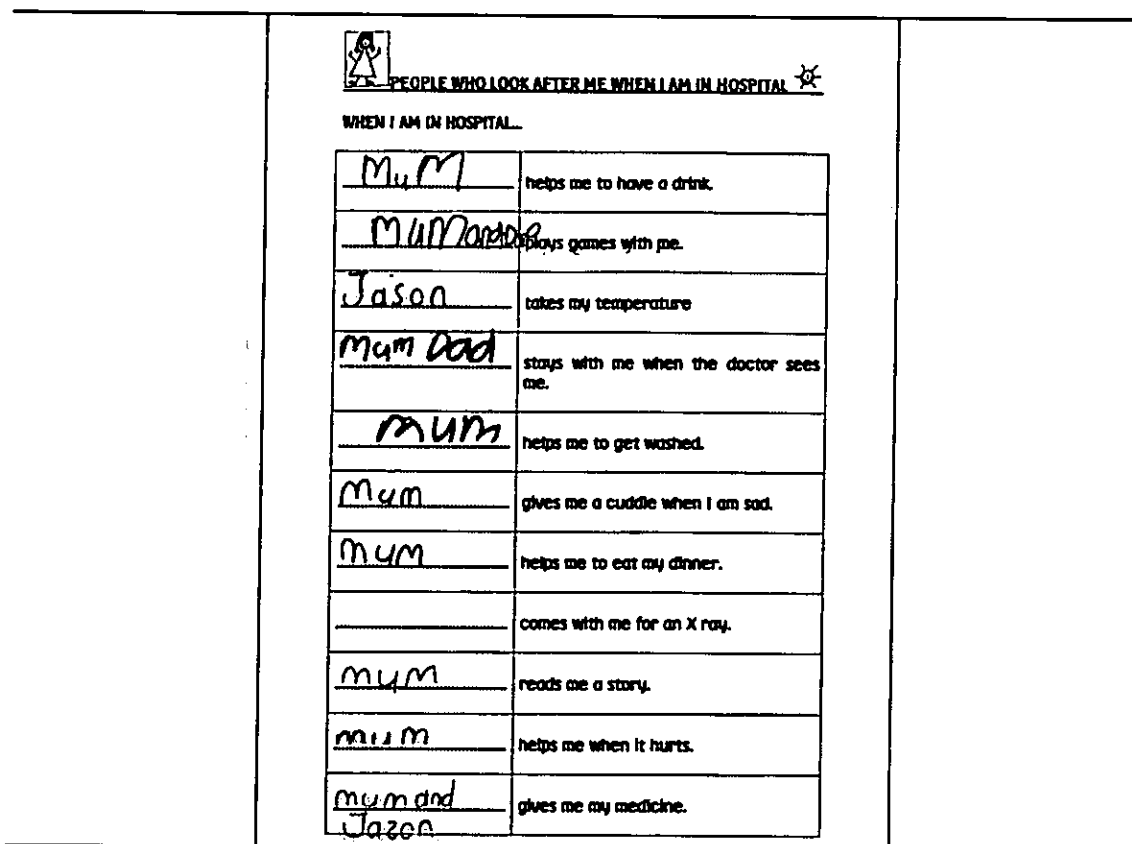 PEOPLE WHO LOOK AFTER ME WHEN I AM IN HOSPITAL
WHEN I AM IN HOSPITAL...
MuM helps me to have a drink.
MUM and Dad plays games with me.
Jason takes my temperature
Mum Dad stays with me when the doctor sees
me.
mum helps me to get washed.
Mum gives me a cuddle when I am sad.
mum helps me to eat my dinner.
comes with me for an X ray.
mum reads me a story.
mum helps me when it hurts.
mum and gives me my medicine.
Jazon